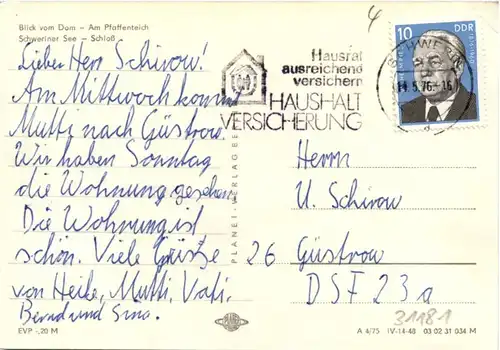 Blick vom Dom – Am Pfaffenteich
Schweriner See – Schloß
Lieber Herr Schirow!
Am Mittwoch kommt
Mutti nach Güstrow.
Wir haben Sonntag
die Wohnung gesehen.
Die Wohnung ist
schön. Viele Grüße
von Heike, Mutti, Vati,
Bernd und
EVP -,20 M
PLANET-VERLAG BE
4
Hausrat
ausreichend
versichern
HAUSHALT
VERSICHERUNG
10 DDR
14.5.76-16
Herrn
U. Schirow
26 Güstrow
DSF 23a
31181
A 4/75 IV-14-48 03 02 31 034 M